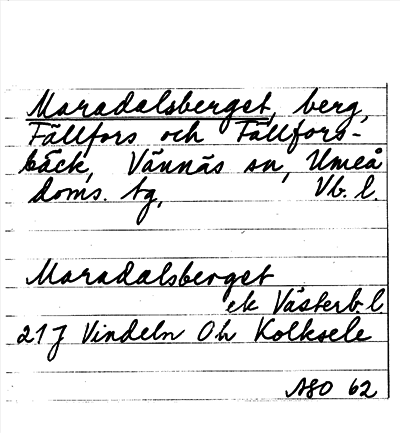 Maradalsberget, berg,
Fällfors och Fällfors-
bäck, Vännäs sn, Umeå
doms. tg, Vb. l.
Maradalsberget
ek Västerb. l
21 J Vindeln Oh Kolksele
ASO 62